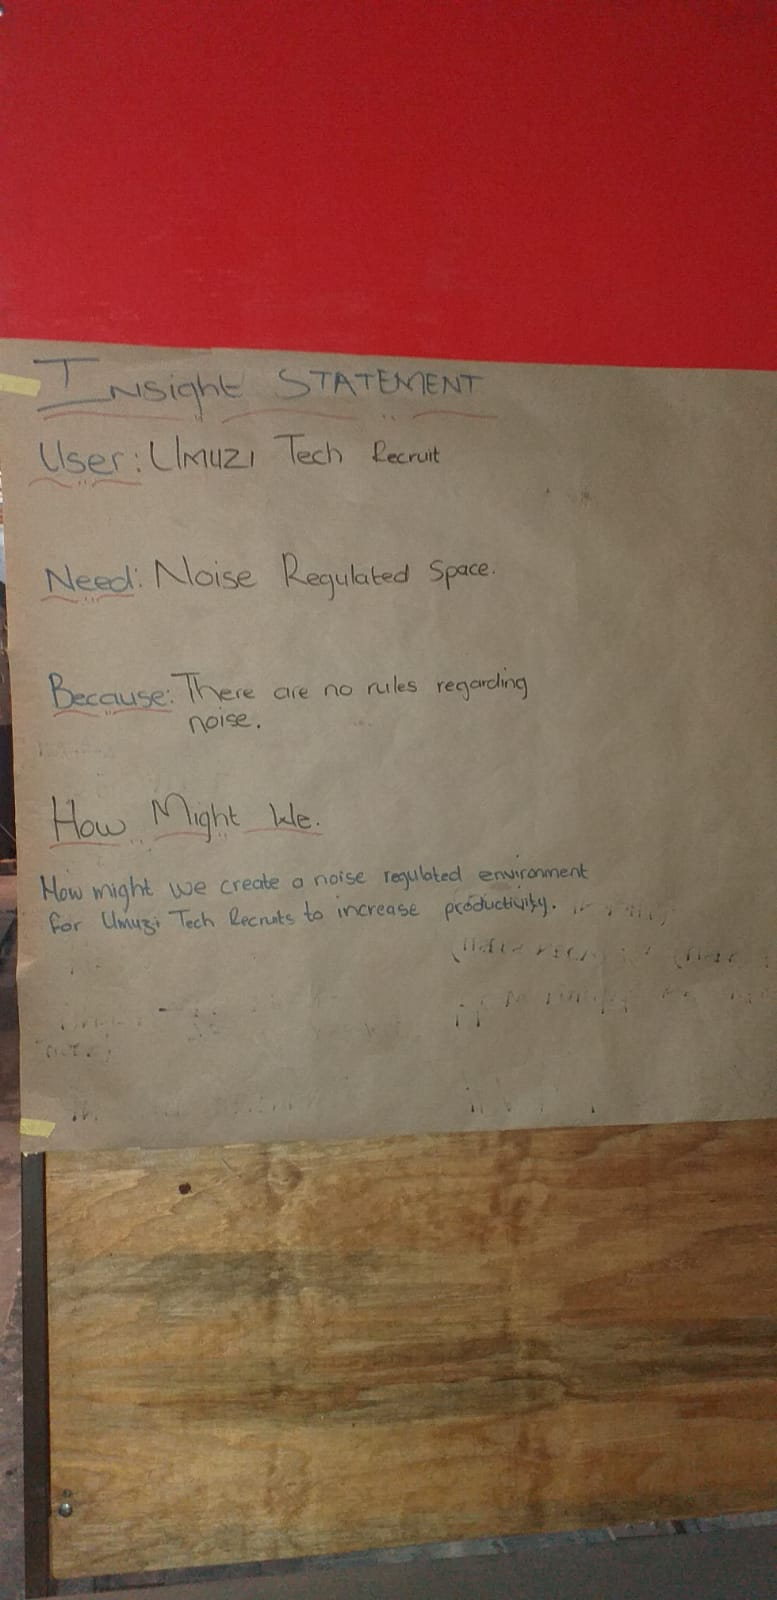 Insight STATEMENT
User: UMUZI Tech Recruit
Need: Noise Regulated Space.
Because: There are no rules regarding
noise.
How Might We.
How might we create a noise regulated environment
for Umuzi Tech Recruits to increase productivity.